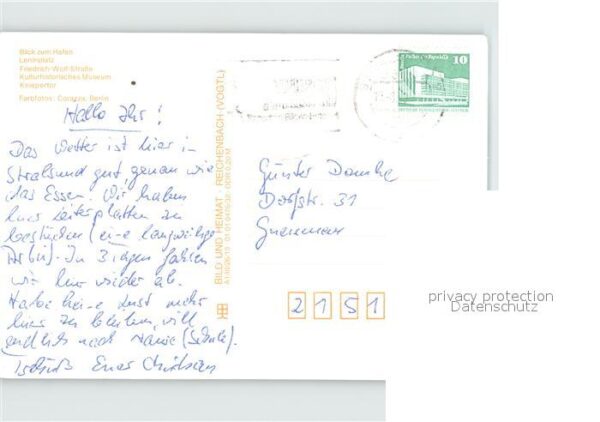 Blick zum Hafen
Leninplatz
Friedrich-Wolf-Straße
Kulturhistorisches Museum
Knieperter
Farbfotos: Darazas, Berlin
Hallo Ihr!
Das Wetter ist hier in
Stralsund gut, genau wie
das Essen. Wir haben
hier Leiterplatten zu
bestücken (eine langweilige
Arbeit). In 3 Tagen fahren
wir hier wieder ab.
Habe keine Lust mehr
hier zu bleiben, will
endlich nach Hause (Schule).
Tschüß Euer Christian
BILD UND HEIMAT · REICHENBACH (VOGTL)
10
Günter
Dorfstr. 31
2151
privacy protection
Datenschutz